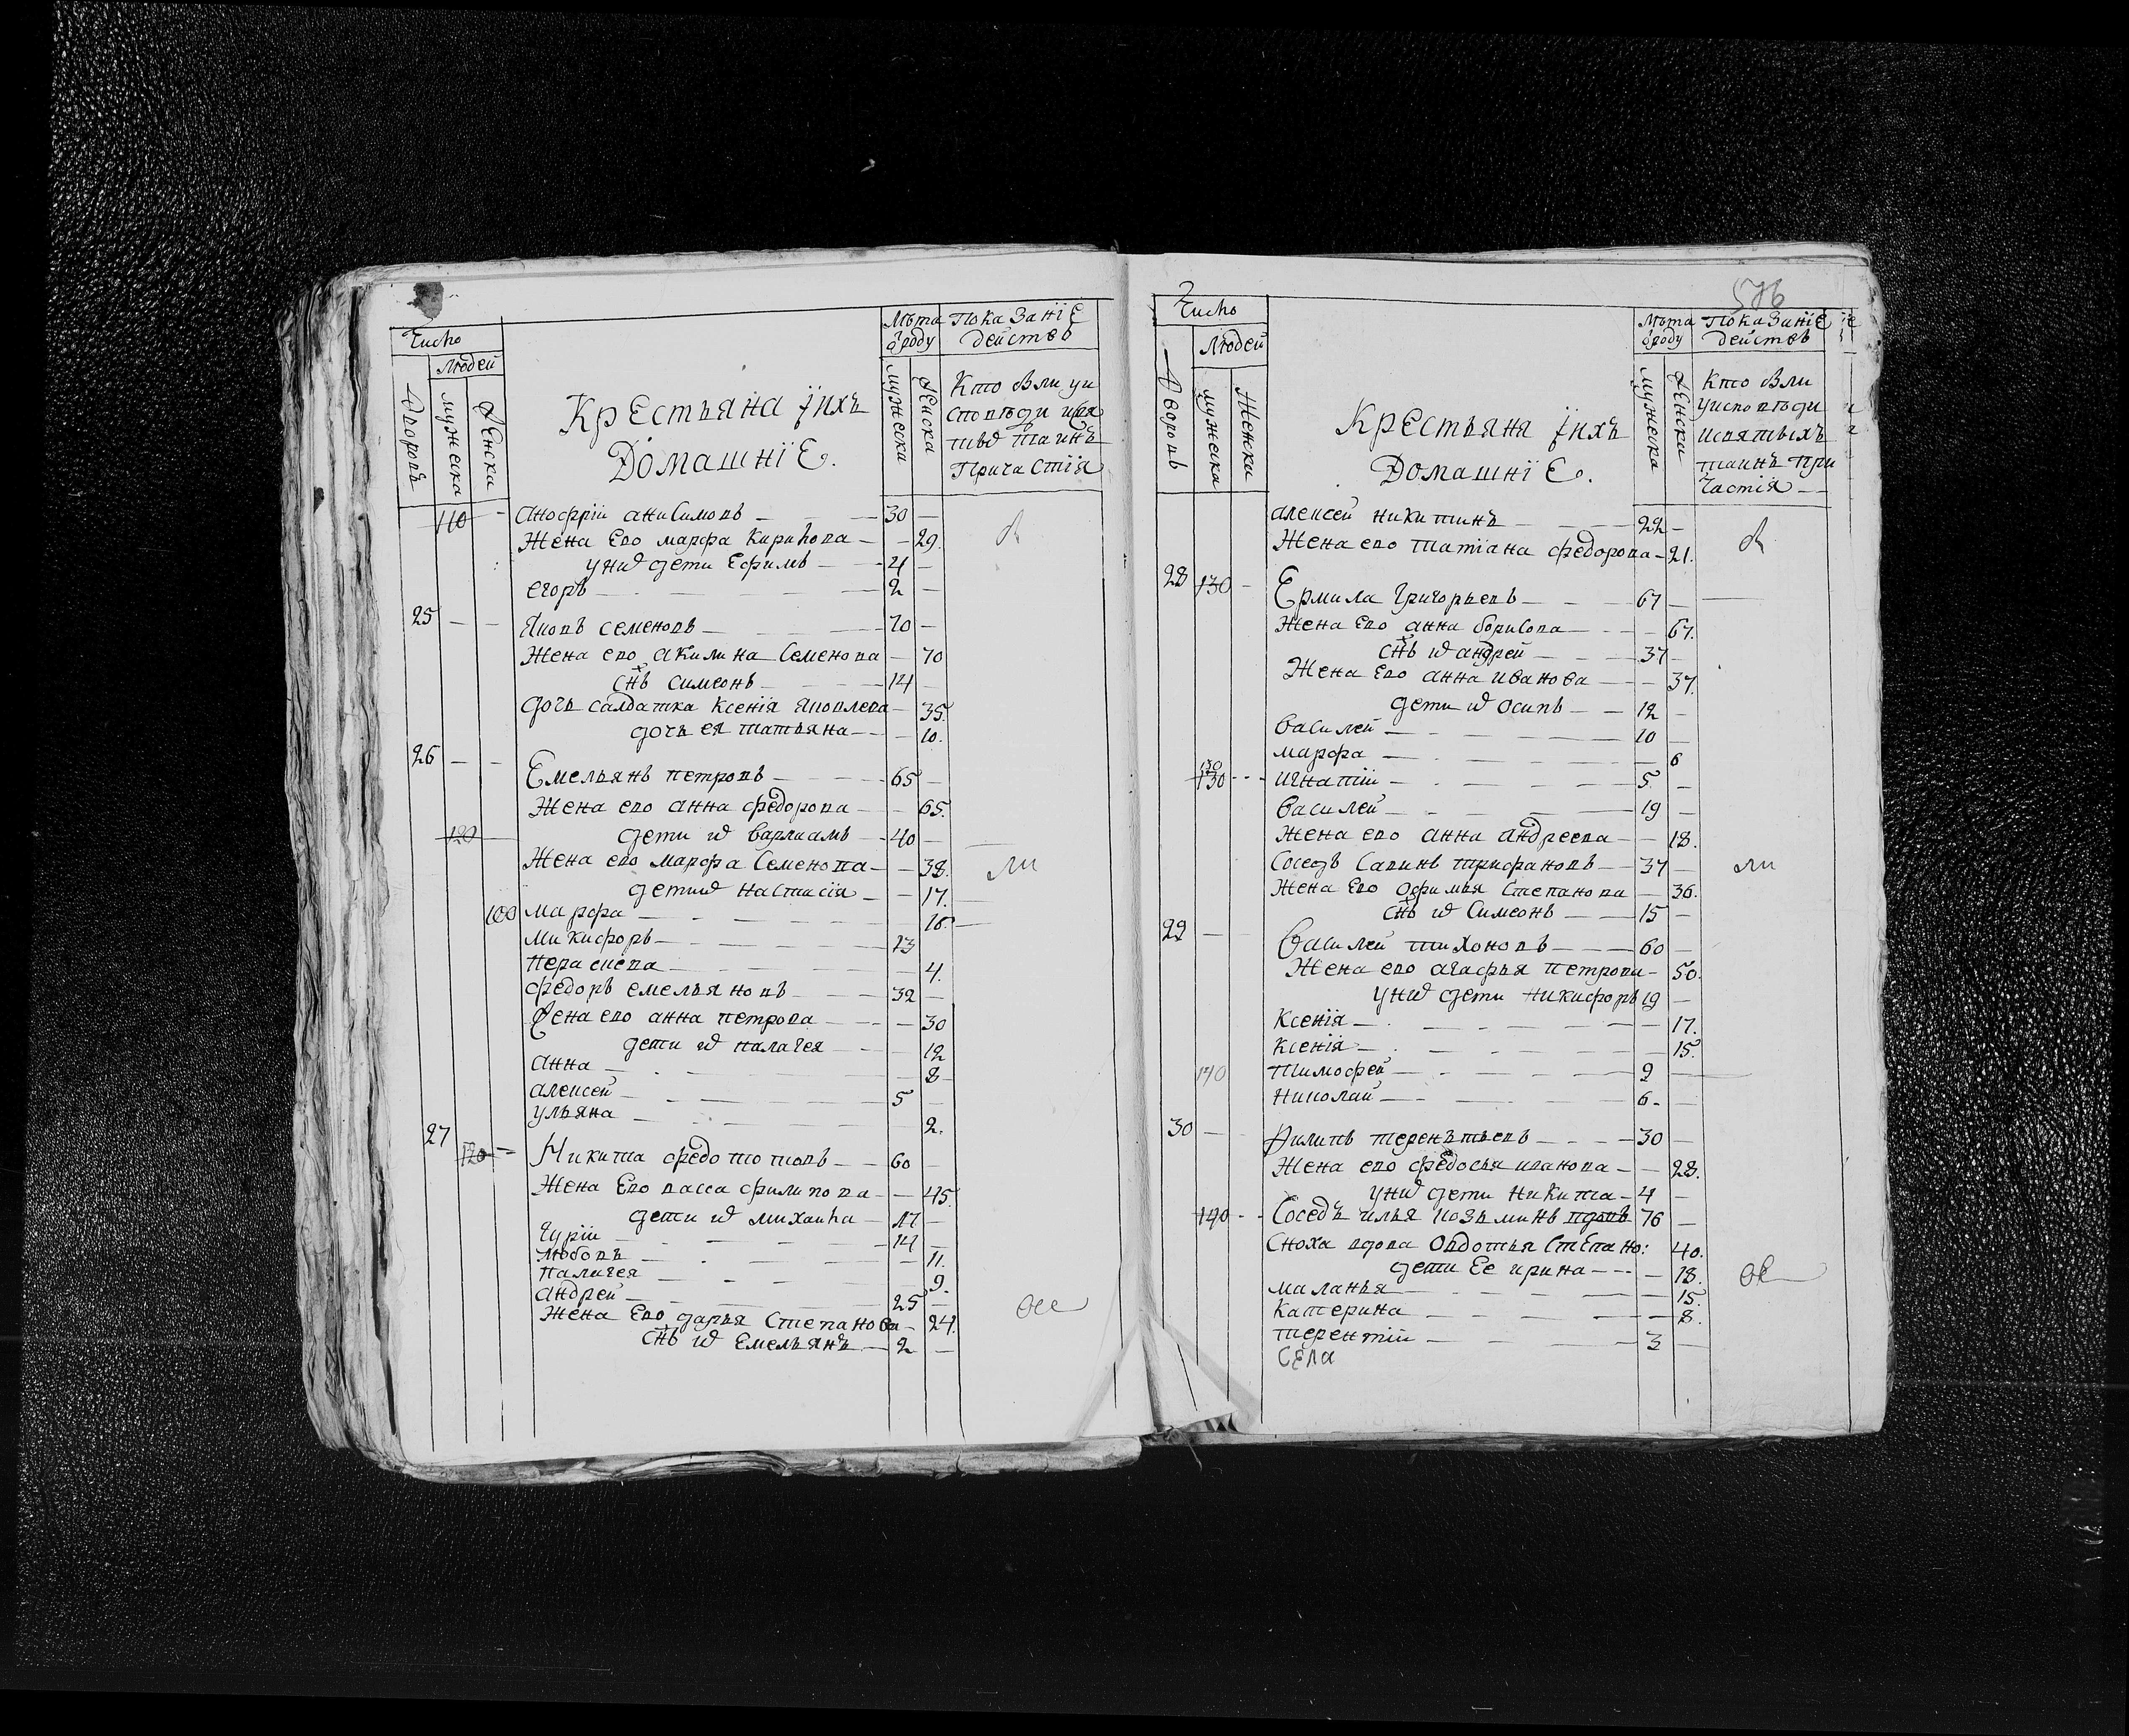 Число
Людей
Дворовъ
мужеска
Женска
Крестьяна ихъ
Домашніе.
Лѣта
ѿ роду
мужески
Женска
Показаніе
действъ
Кто были у и
споведи и свя
тыѡ таинъ
Причастія
110
Анофрій анисимовъ 30
Жена Ево марфа Кирилова 29.
у ниѡ дети Ефимъ 4
егоръ 2
25
Яковъ семеновъ 70
Жена ево акилина Семенова 70
снъ симеонъ 14
дочь салдатка Ксенія яковлева 35.
дочь ея татьяна 10.
26
Емельянъ петровъ 65
Жена ево анна федорова 65.
120
дети иѡ варлаамъ 40
Жена ево марфа Семенова 38.
дети иѡ настасія 17.
100
марфа 16.
микифоръ 13
пераскева 4.
федоръ емельяновъ 32
Жена ево анна петрова 30
дети иѡ палагея 12
анна 8
алексей 5
ульяна 2.
27
120
Никита федотовъ 60
Жена Ево васса филипова 45.
дети иѡ михаила 17
Гурій 14
любовь 11.
палагея 9.
андрей 25
Жена Ево дарья Степанова 24.
снъ иѡ Емельянъ 2
Число
Людей
Дворовъ
мужеска
Женски
Крестьяня ихъ
Домашніе.
Лѣта
ѿ роду
мужеска
Женски
576
Показаніе
действъ
Кто были
у исповеди
и святыхъ
таинъ при
частія
алексей никитинъ 22
Жена ево татіана федорова 21.
28
130
Ермила Григорьевъ 67
Жена Ево анна борисова 67.
снъ иѡ андрей 37
Жена Ево анна иванова 37.
дети иѡ осипъ 12
василей 10
марфа 6
130
130
игнатій 5
василей 19
Жена ево анна андреева 18.
соседъ савинъ трифановъ 37
Жена Ево офимья Степанова 36.
снъ иѡ Симеонъ 15
29
василей тихоновъ 60
Жена ево агафья петрова 50.
у ниѡ дети никифоръ 19
Ксенія 17.
Ксенія 15.
140
тимофей 9
николай 6
30
Филипъ терентьевъ 30
Жена ево федосья иванова 28.
у ниѡ дети никита 4
140
Соседъ илья козьминъ вдовъ 76
Сноха вдова Овдотья Степано: 40.
дети Ее ирина 18.
маланья 15.
Катерина 8.
терентій 3
села